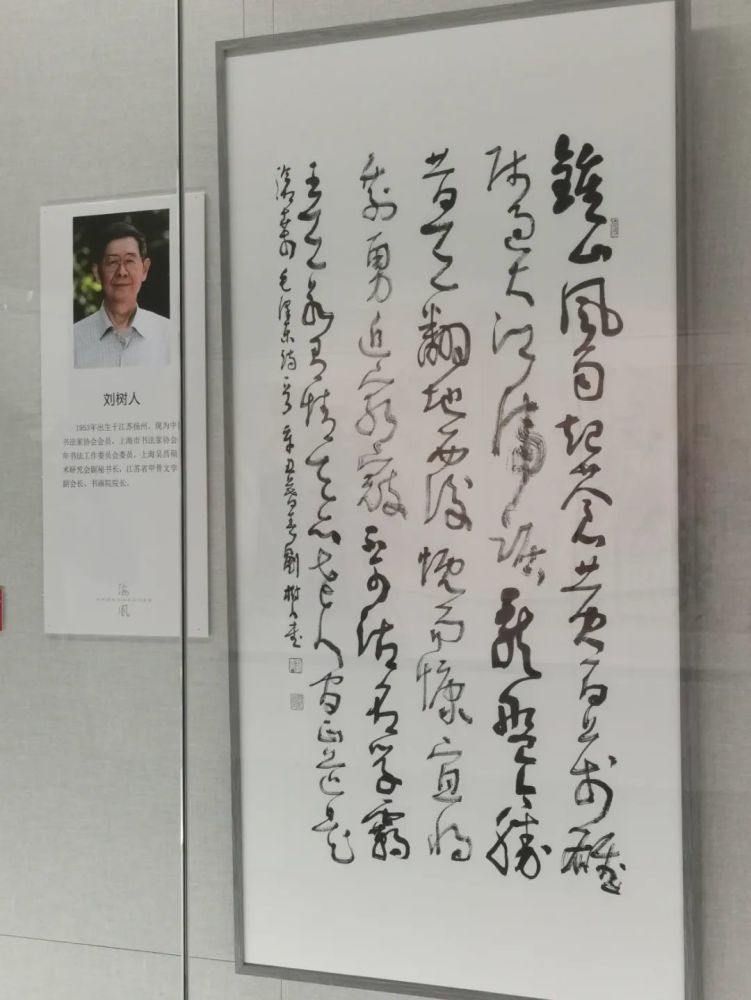 鍾山風雨起蒼黄百万雄
师过大江虎踞龙盘今胜
昔天翻地覆慨而慷宜将
剩勇追窮寇不可沽名学霸
王天若有情天亦老人间正道是
滄桑 毛澤东詩一首 辛丑春 劉樹人書
刘树人
1953年出生于江苏扬州。现为中
书法家协会会员，上海市书法家协会
年书法工作委员会委员，上海吴昌硕
术研究会副秘书长，江苏省甲骨文学
副会长、书画院院长。
海风